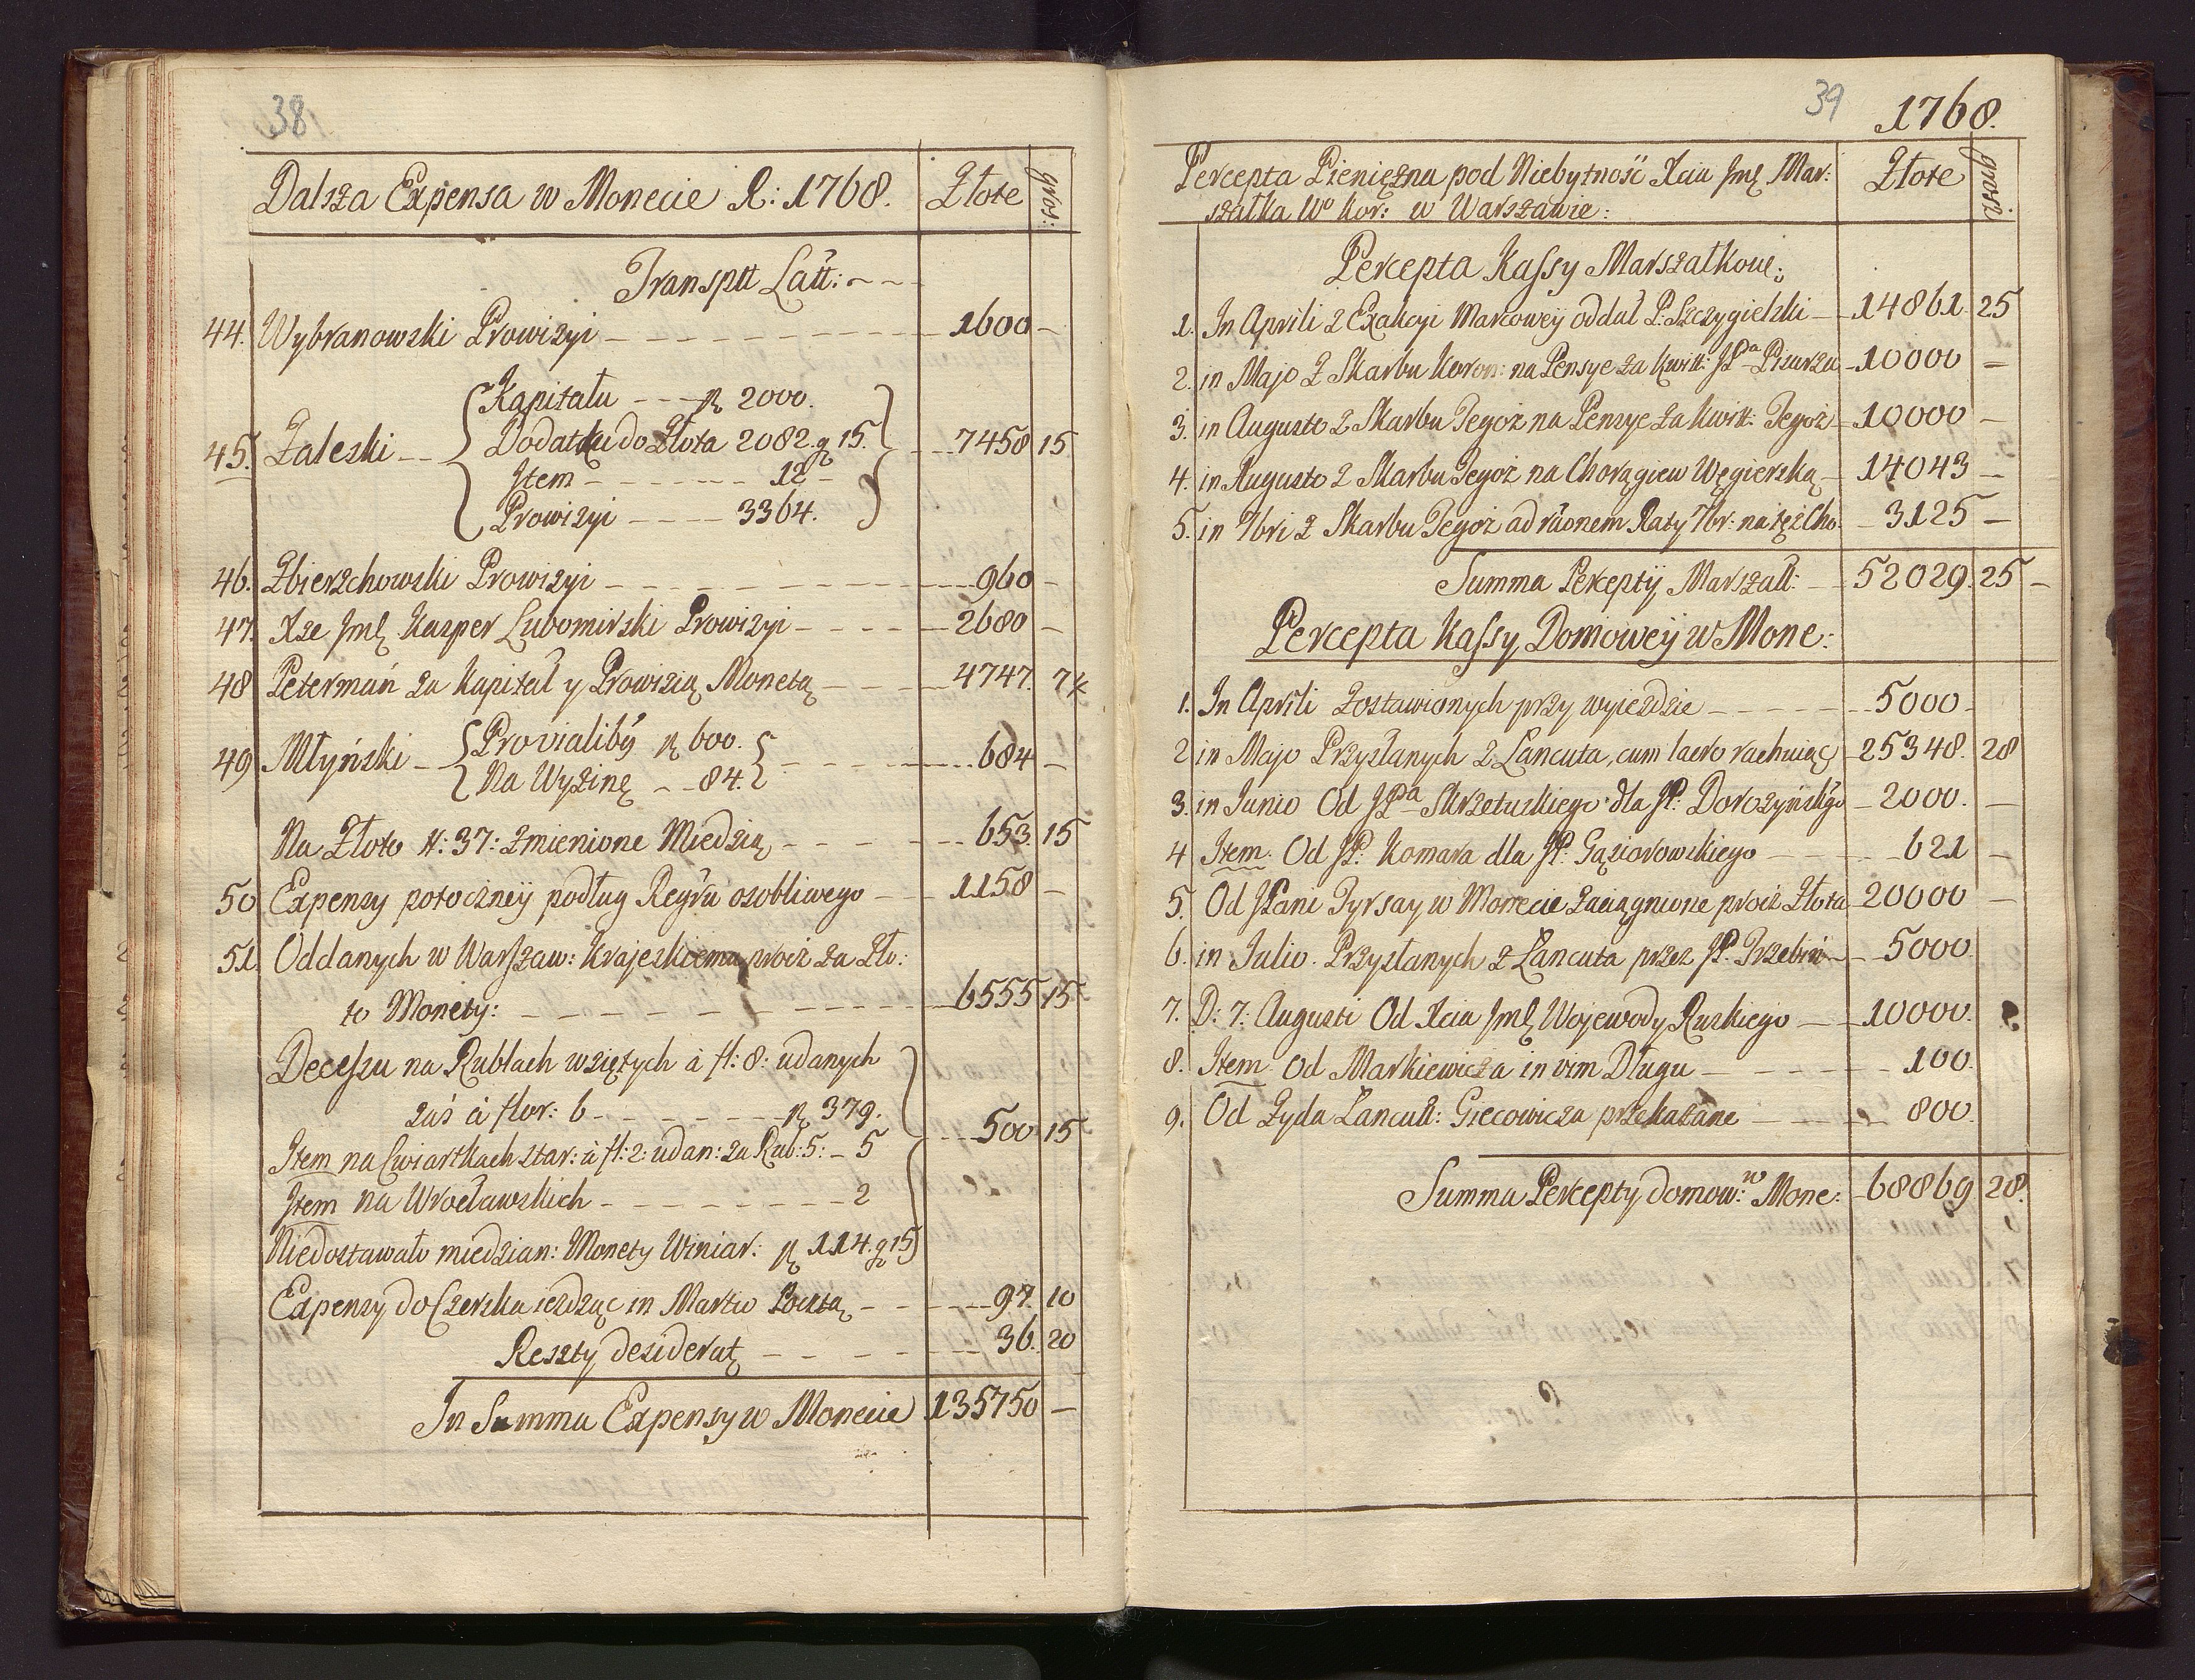 38
Dalsza Expensa w Monecie R: 1768. Złote grosz:
Transptt Latt:
44. Wybranowski Prowizyi 1600 –
Kapitału 2000.
45. Zaleski Dodatku do Złota 2082. g 15. 7458 15
Item 12 –
Prowizyi 3364.
46. Zbierzchowski Prowizyi 960 –
47. Xże Jmć Kasper Lubomirski Prowizyi 2680 –
48 Peterman za Kapitał y Prowizią Monetą 4747. 7½
49 Młyński Provialibÿ 600. 684 –
Na Wyżinę 84.
Na Złoto #: 37: zmienione Miedzią 653. 15
50 Expensy potoczneÿ podług Regr̃u osobliwego 1158 –
51. Oddanych w Warszaw: Krajeskiemu procz za Zło:
to Monety: 6555 15
Decessu na Rublach wziętych à fl: 8: udanych
zaś à flor: 6 379.
500 15
Item na Cwiartkach star: à fl: 2: udan: za Rub: 5: – 5
Item na Wrocławskich 2
Niedostawało miedzian: Monety Winiar: 114. g 15
Expensy do Czerska ieżdżąc in Martio Pocztą 97. 10
Reszty desiderat 36. 20
In Summa Expensy w Monecie 135750 –
39 1768.
Percepta Pieniężna pod Niebytność Xcia Jmć Mar: Złote grosz.
szałka Wo Kor: w Warszawie:
Percepta Kassy Marszałkow:
1. In Aprili z Exakcyi Marcoweÿ oddał P. Szczygielski 14861. 25
2. in Majo z Skarbu Koron: na Pensye za Kwitt: JPa Pisarza 10000 –
3. in Augusto z Skarbu Tegoż na Pensye za Kwitt: Tegoż 10000 –
4. in Augusto z Skarbu Tegoż na Chorągiew Węgierską 14043 –
5. in 7bri z Skarbu Tegoż ad r̃aonem Raty 7br: na też Cho 3125 –
Summa Perceptÿ Marszałt: 52029. 25 –
Percepta Kassy Domoweÿ w Mone:
1. In Aprili zostawionych przy wyieździe 5000 –
2 in Majo Przysłanych z Lancuta, cum lacro rachuiąc 25348. 28
3. in Junio Od JPa Skrzetuskiego dla JP: Dorożyńskgo 2000. –
4 Item. Od JP: Komara dla JP: Gąsiorowskiego 621 –
5. Od JPani Tyrsay w Monecie zaciągnione procz Złota 20000 –
6. in Julio. Przysłanych z Lancuta przez JP. Trzebiń 5000.
7. D: 7: Augusti Od Xcia Jmć Wojewody Ruskiego 10000.
8. Item Od Markiewicza in vim Długu 100.
9. Od Żyda Lancutt: Giecowicza przekazane 800.
Summa Percepty domow: w Mone: 68869 28.